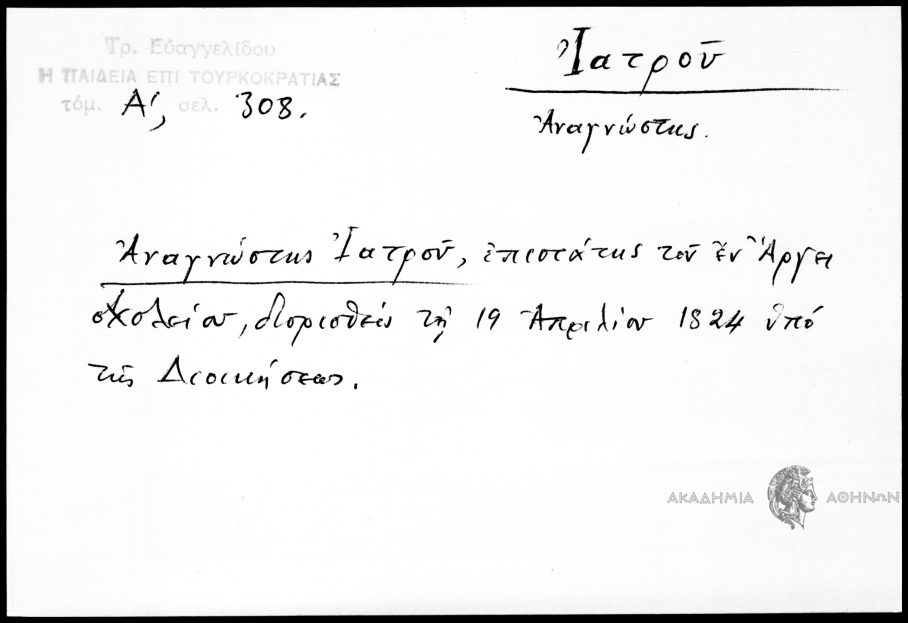 Τρ. Εὐαγγελίδου
Η ΠΑΙΔΕΙΑ ΕΠΙ ΤΟΥΡΚΟΚΡΑΤΙΑΣ
τόμ. Α', σελ. 308.
Ἰατροῦ
Ἀναγνώστης.
Ἀναγνώστης Ἰατροῦ, ἐπιστάτης τοῦ ἐν Ἄργει
σχολείου, διορισθεὶς τῇ 19 Ἀπριλίου 1824 ὑπὸ
τῆς Διοικήσεως.
ΑΚΑΔΗΜΙΑ ΑΘΗΝΩΝ